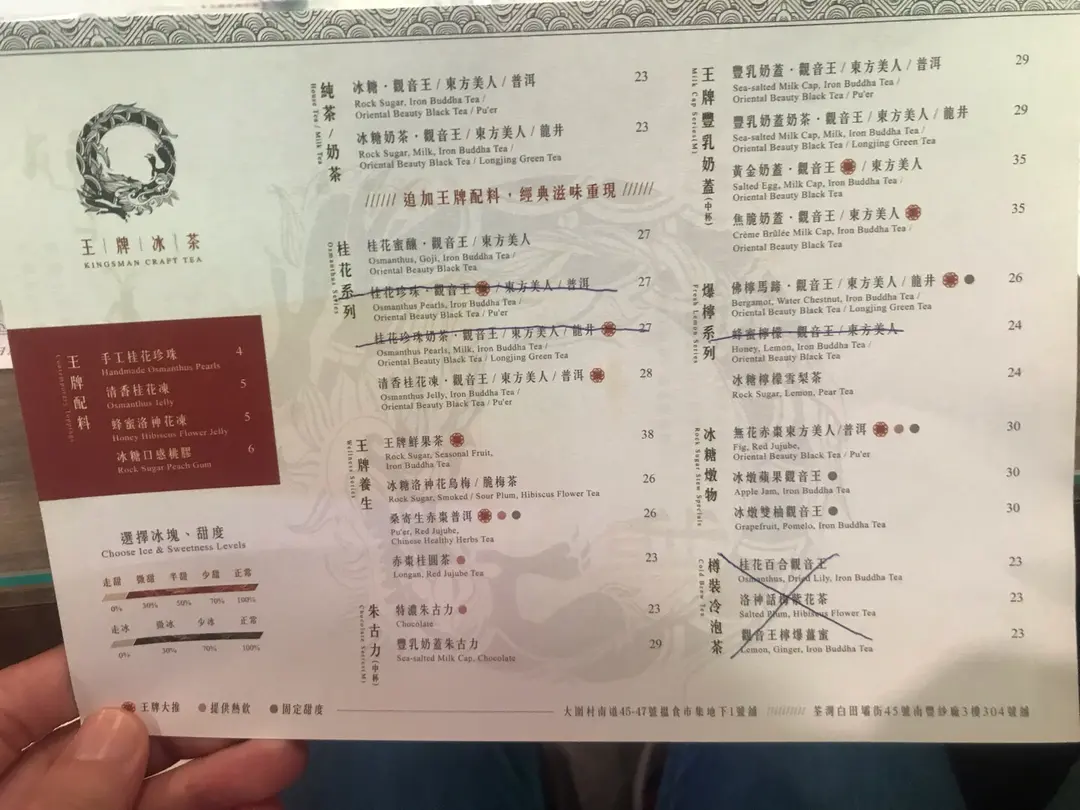 王 | 牌 | 冰 | 茶
KINGSMAN CRAFT TEA
王牌配料
手工桂花珍珠 4
Handmade Osmanthus Pearls
清香桂花凍 5
Osmanthus Jelly
蜂蜜洛神花凍 5
Honey Hibiscus Flower Jelly
冰糖口感桃膠 6
Rock Sugar Peach Gum
選擇冰塊、甜度
Choose Ice & Sweetness Levels
走甜 微甜 半甜 少甜 正常
0% 30% 50% 70% 100%
走冰 微冰 少冰 正常
0% 30% 70% 100%
純茶/奶茶
House Tea / Milk Tea
冰糖・觀音王 / 東方美人 / 普洱 23
Rock Sugar, Iron Buddha Tea /
Oriental Beauty Black Tea / Pu'er
冰糖奶茶・觀音王 / 東方美人 / 龍井 23
Rock Sugar, Milk, Iron Buddha Tea /
Oriental Beauty Black Tea / Longjing Green Tea
////// 追加王牌配料，經典滋味重現 //////
桂花系列
Osmanthus Series
桂花蜜釀・觀音王 / 東方美人 27
Osmanthus, Goji, Iron Buddha Tea /
Oriental Beauty Black Tea
桂花珍珠・觀音王 / 東方美人 / 普洱 27
Osmanthus Pearls, Iron Buddha Tea /
Oriental Beauty Black Tea / Pu'er
桂花珍珠奶茶・觀音王 / 東方美人 / 龍井 27
Osmanthus Pearls, Milk, Iron Buddha Tea /
Oriental Beauty Black Tea / Longjing Green Tea
清香桂花凍・觀音王 / 東方美人 / 普洱 28
Osmanthus Jelly, Iron Buddha Tea /
Oriental Beauty Black Tea / Pu'er
王牌養生
Wellness Series
王牌鮮果茶 38
Rock Sugar, Seasonal Fruit,
Iron Buddha Tea
冰糖洛神花烏梅 / 脆梅茶 26
Rock Sugar, Smoked / Sour Plum, Hibiscus Flower Tea
桑寄生赤棗普洱 26
Pu'er, Red Jujube,
Chinese Healthy Herbs Tea
赤棗桂圓茶 23
Longan, Red Jujube Tea
朱古力(中杯)
Chocolate Series(M)
特濃朱古力 23
Chocolate
豐乳奶蓋朱古力 29
Sea-salted Milk Cap, Chocolate
王牌豐乳奶蓋(中杯)
Milk Cap Series(M)
豐乳奶蓋・觀音王 / 東方美人 / 普洱 29
Sea-salted Milk Cap, Iron Buddha Tea /
Oriental Beauty Black Tea / Pu'er
豐乳奶蓋奶茶・觀音王 / 東方美人 / 龍井 29
Sea-salted Milk Cap, Milk, Iron Buddha Tea /
Oriental Beauty Black Tea / Longjing Green Tea
黃金奶蓋・觀音王 / 東方美人 35
Salted Egg, Milk Cap, Iron Buddha Tea /
Oriental Beauty Black Tea
焦脆奶蓋・觀音王 / 東方美人 35
Crème Brûlée Milk Cap, Iron Buddha Tea /
Oriental Beauty Black Tea
爆檸系列
Fresh Lemon Series
佛檸馬蹄・觀音王 / 東方美人 / 龍井 26
Bergamot, Water Chestnut, Iron Buddha Tea /
Oriental Beauty Black Tea / Longjing Green Tea
蜂蜜檸檬・觀音王 / 東方美人 24
Honey, Lemon, Iron Buddha Tea /
Oriental Beauty Black Tea
冰糖檸檬雪梨茶 24
Rock Sugar, Lemon, Pear Tea
冰糖燉物
Rock Sugar Stew Specials
無花赤棗東方美人/普洱 30
Fig, Red Jujube,
Oriental Beauty Black Tea / Pu'er
冰燉蘋果觀音王 30
Apple Jam, Iron Buddha Tea
冰燉雙柚觀音王 30
Grapefruit, Pomelo, Iron Buddha Tea
樽裝冷泡茶
Cold Brew Tea
桂花百合觀音王 23
Osmanthus, Dried Lily, Iron Buddha Tea
洛神話梅紫花茶 23
Salted Plum, Hibiscus Flower Tea
觀音王檸爆薑蜜 23
Lemon, Ginger, Iron Buddha Tea
王牌大推 提供熱飲 固定甜度
大圍村南道45-47號搵食市集地下1號舖 ///////// 荃灣白田壩街45號南豐紗廠3樓304號舖